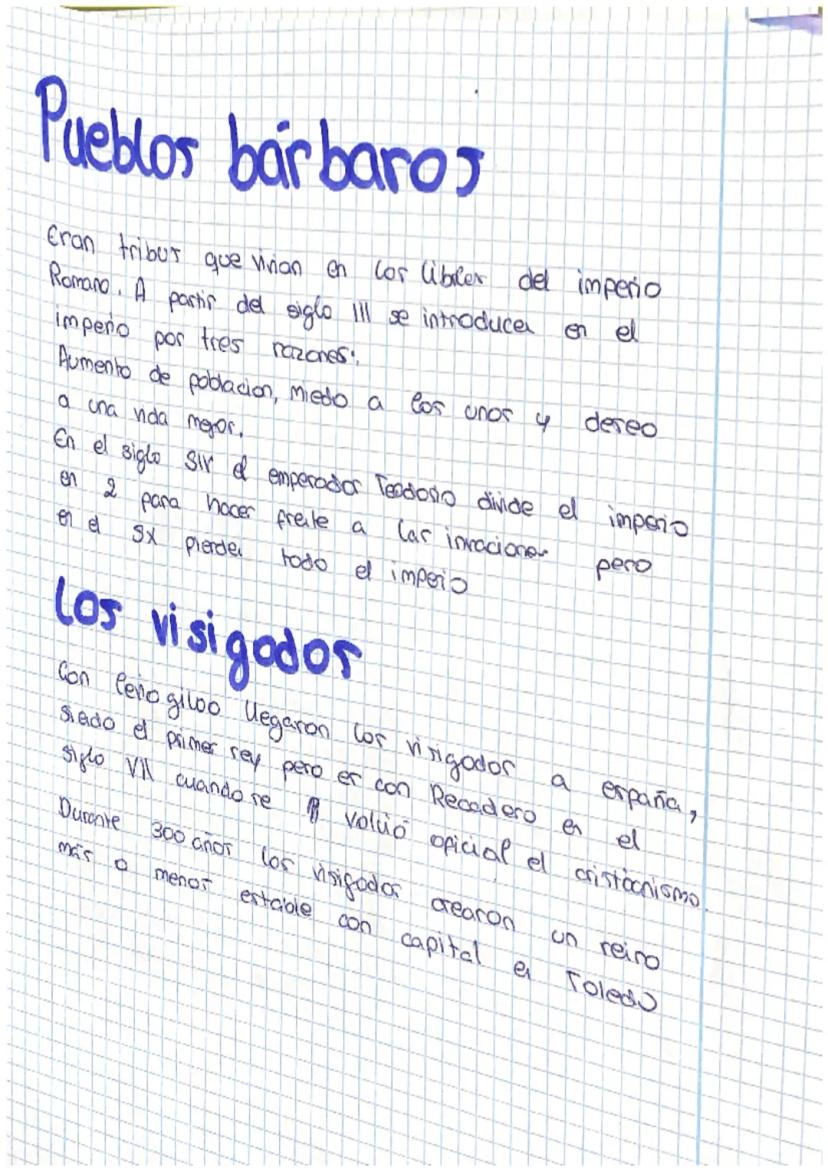 Pueblos bárbaros
Eran tribus que vivian en los libites del imperio
Romano. A partir del siglo III se introducen en el
imperio por tres razones:
Aumento de poblacion, miedo a los unos y deseo
a una vida mejor.
En el siglo SIV el emperador Teodosio divide el imperio
en 2 para hacer frente a las invaciones pero
en el SX pierden todo el imperio
Los visigodos
Con leviogildo llegaron los visigodos a españa,
siedo el primer rey pero es con Recadero en el
siglo VII cuando se volvió oficial el cristianismo.
Durante 300 años los visigodos crearon un reino
más o menos estable con capital en Toledo